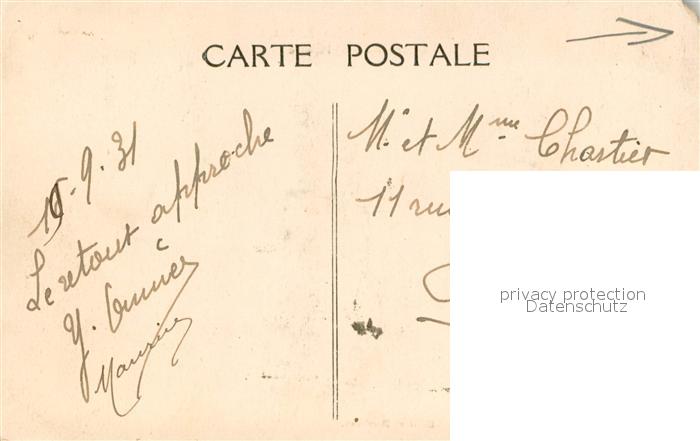 CARTE POSTALE
15.9.31
Le retour approche
Y.
Maurice
Mr et Mme Chartier
11 rue
privacy protection
Datenschutz